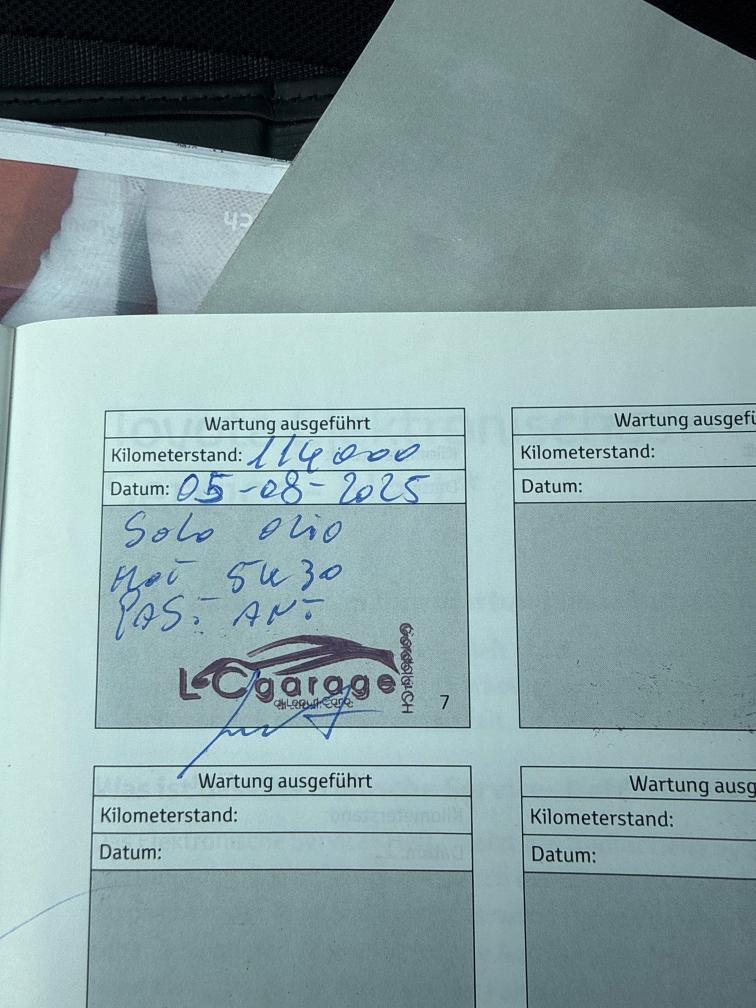 Wartung ausgeführt
Kilometerstand: 114000
Datum: 05-08-2025
Solo olio
Mot 5W30
PAS. ANT.
LCgarage
7
Wartung
Kilometerstand:
Datum:
Wartung ausgeführt
Kilometerstand:
Datum:
Wartung
Kilometerstand:
Datum: